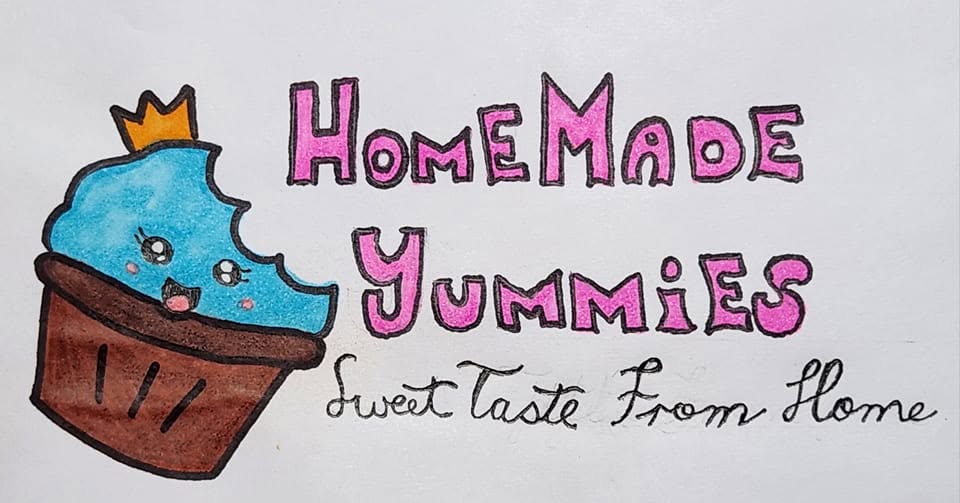 HOMEMADE
YUMMiES
Sweet Taste From Home